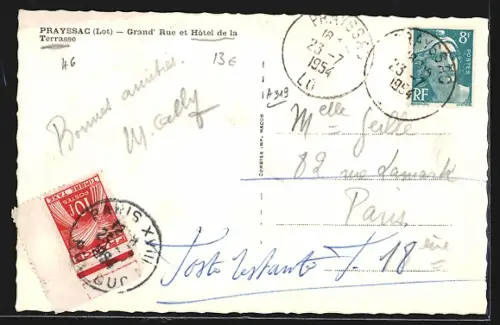 PRAYSSAC (Lot) — Grand' Rue et Hôtel de la
Terrasse
A6
13€
Bonnes amitiés
M. Cally
PRAYSSAC
18
23 -7
1954
LOT
PRAYSSAC
23
1954
8F
POSTES
RF
A319
COMBIER IMP. MACON
Melle
82 rue Lamark
Paris
18ème
Poste restante
10F
POSTES
TIMBRE TAXE
PARIS XVIII